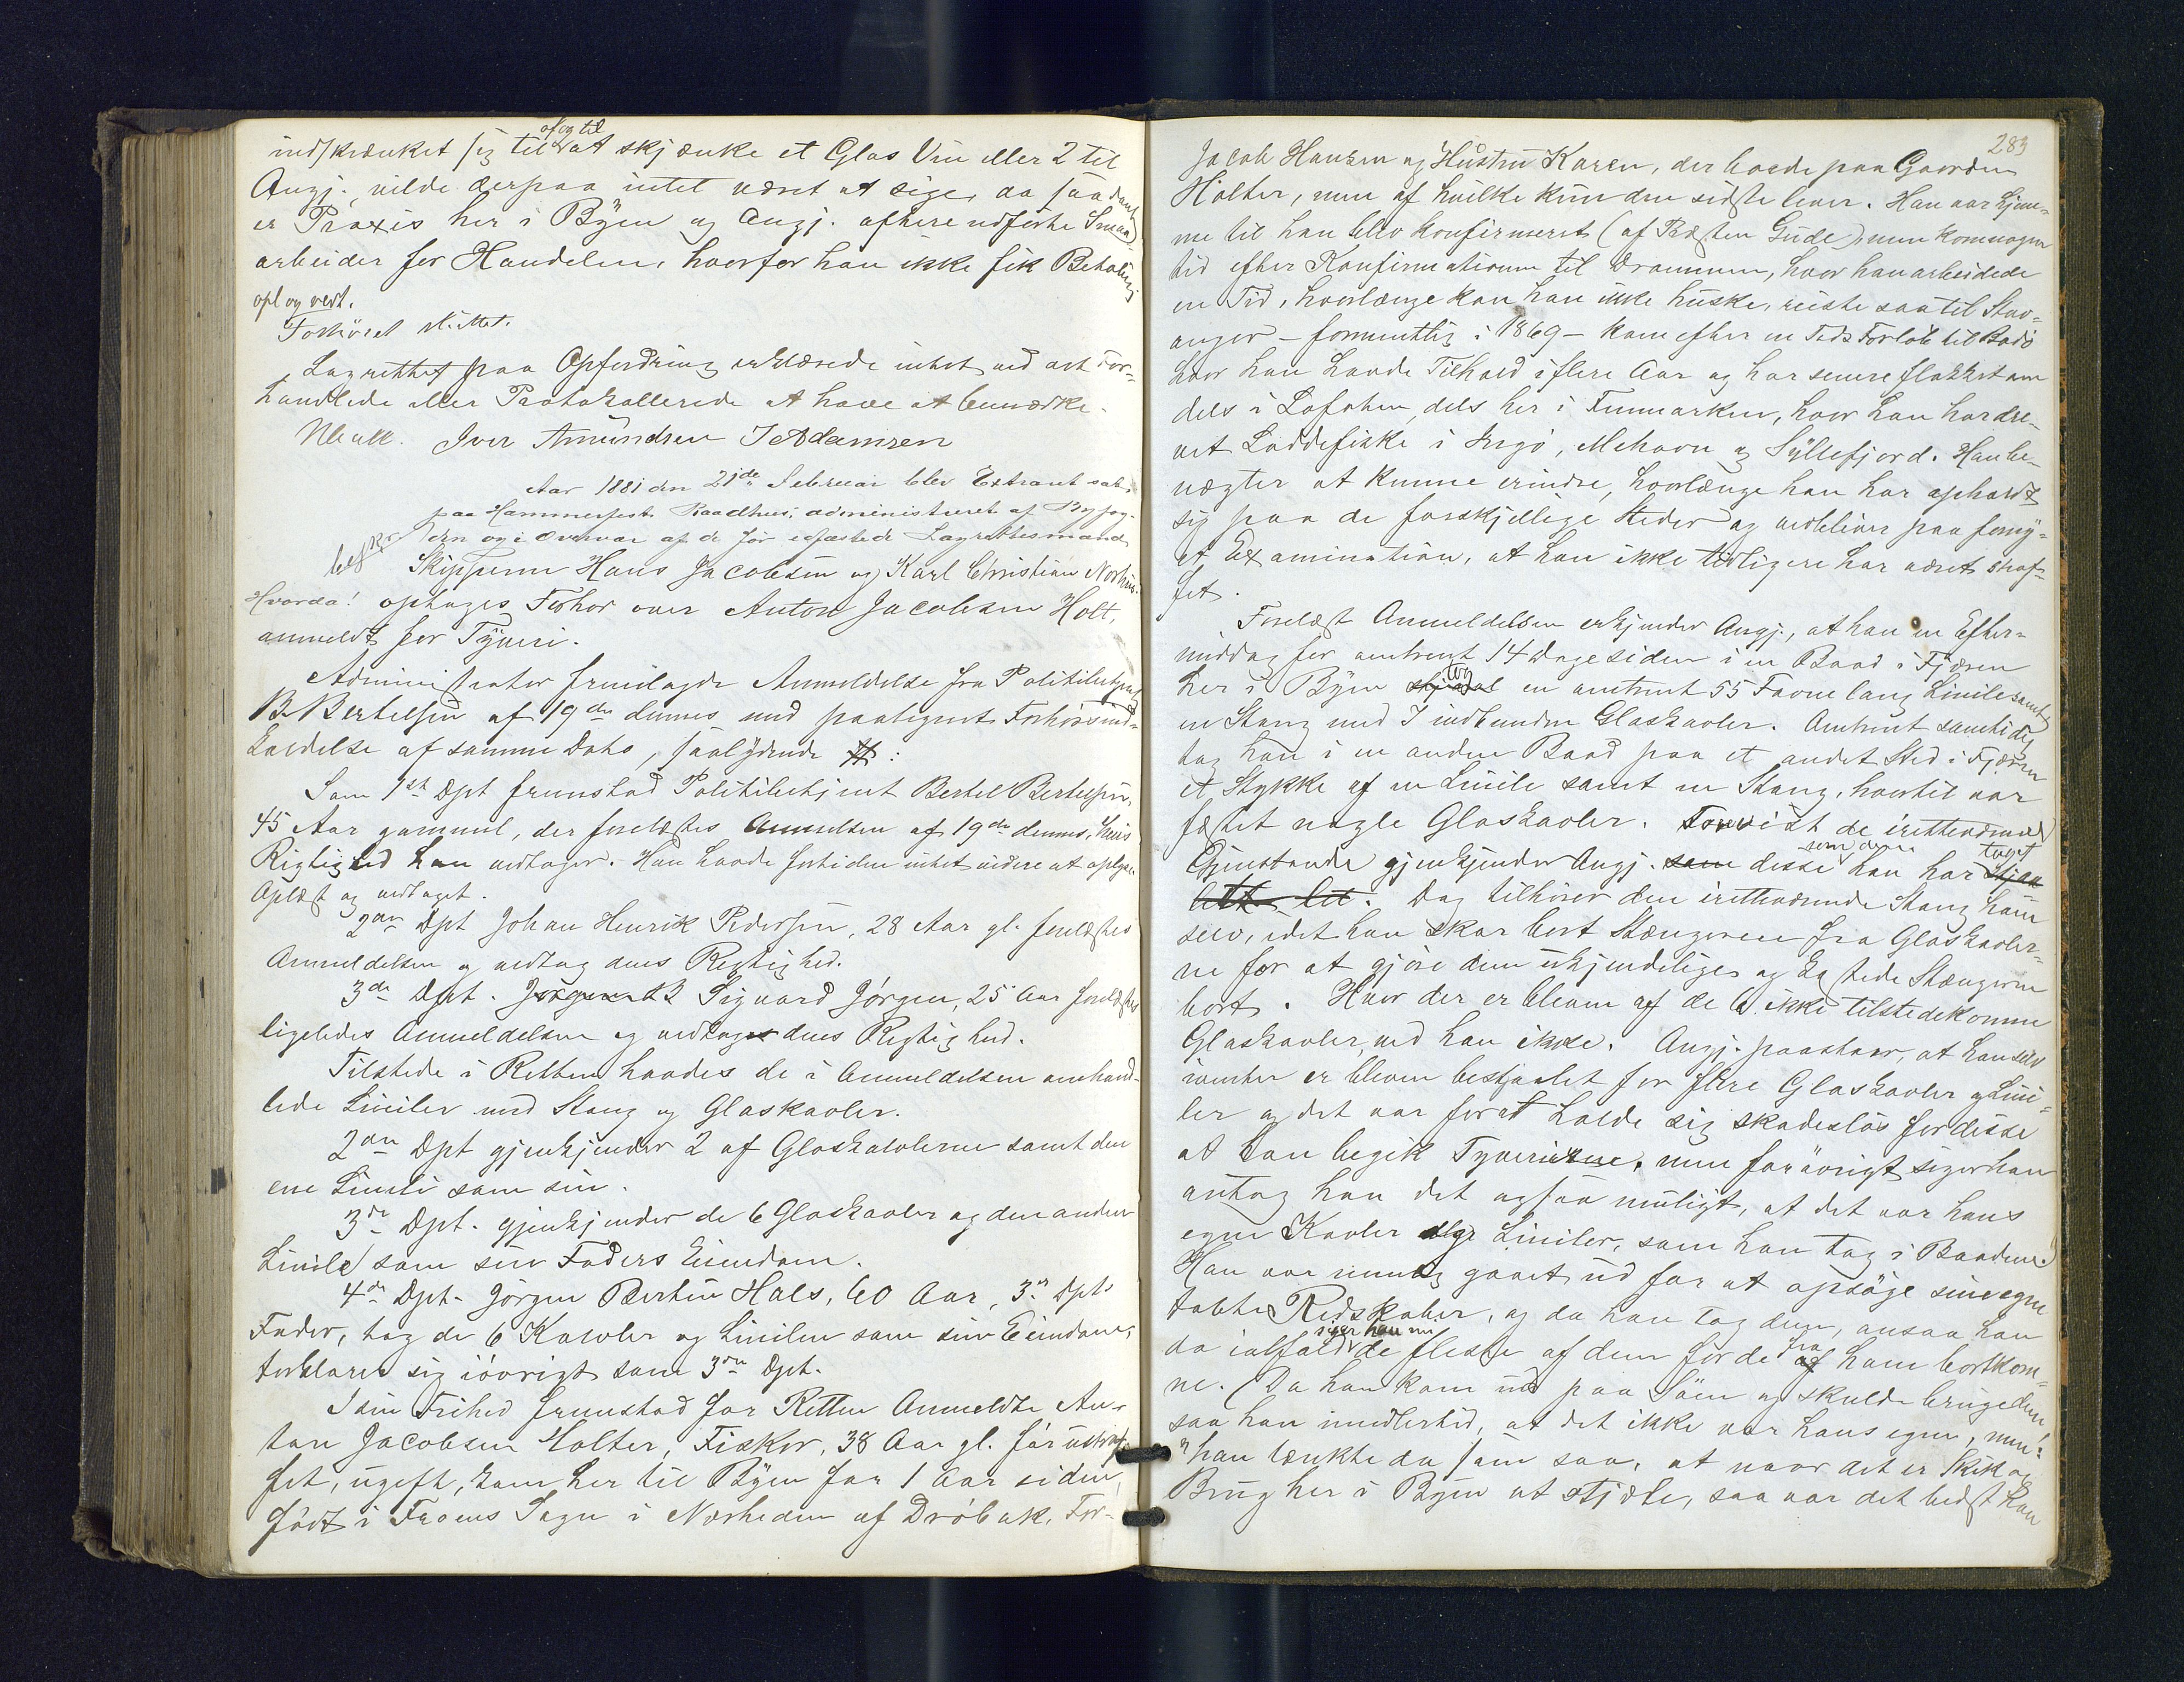 af og til
indskrænket sig til at skjænke et Glas Vin eller 2 til
Angj. vilde derpaa intet været at sige, da saadant
er Praxis her i Byen og Angj. oftere udførte Smaa-
arbeider for Handelen, hvorfor han ikke fik Betaling
opl og vedt.
Forhöret sluttet.
Lagrettet paa Opfordring erklærede intet ved det For-
handlede eller Protokollerede at have at bemærke.
Iver Amundsen J Adamsen
Aar 1881 den 21de Februar blev Extraret sat
paa Hammerfest Raadhus, administreret af Byfog-
den og i Overvær af de før edfæstede Lagrettesmænd
Skipperne Hans Jacobsen og Karl Christian
Hvorda! optoges Forhør over Anton Jacobsen Holt,
anmeldt for Tyveri.
Administrator fremlagde Anmeldelse fra Politibetjent
B. Bertelsen af 19de dennes med paategnet Forhørsind-
kaldelse af samme Dato, saalydende :
Som 1ste Dpt fremstod Politibetjent Bertel Bertelsen,
45 Aar gammel, der forelæstes Anmeldelsen af 19de dennes, hvis
Rigtighed han vedtager. Han havde fortiden intet videre at oplyse.
Oplæst og vedtaget.
2den Dpt Johan Henrik Pedersen, 28 Aar gl. forelæstes
Anmeldelsen og vedtog dens Rigtighed.
3de Dpt. Sigvard Jørgen, 25 Aar forelæstes
ligeledes Anmeldelsen og vedtoges dens Rigtighed.
Tilstede i Retten havdes de i Anmeldelsen omhand-
lede Liniler med Stang og Glaskavler.
2den Dpt gjenkjender 2 af Glaskavlerne samt den
ene Linile som sin.
3de Dpt. gjenkjender de 6 Glaskavler og den anden
Linile som sin Faders Eiendom.
4de Dpt. Jørgen Bertin Hals, 60 Aar, 3die Dpts
Fader, tog de 6 Kavler og Linilen som sin Eiendom,
forklarer sig iövrigt som 3die Dpt.
I sin Frihed fremstod for Retten Anmeldte An-
ton Jacobsen Holter, Fisker, 38 Aar gl. før ustraf-
fet, ugift, kom her til Byen for 1 Aar siden,
født i Froens Sogn i Nærheden af Dröbak, For-
283
Jacob Hansen og Hustru Karen, der boede paa Gaarden
Holter, men af hvilke kun den sidste lever. Han var hjem-
me til han blev konfirmeret (af Præsten Gude) men kom nogen
tid efter Konfirmationen til Drammen, hvor han arbeidede
en Tid, hvorlænge kan han ikke huske, reiste saa til Stav-
anger - formentlig i 1869 - kom efter en Tids Forløb til Bodö
hvor han havde Tilhold i flere Aar og har senere flakket om
dels i Lofoten, dels her i Finmarken, hvor han har dre-
vet Loddefiske i Ingö, Mehavn og Syltefjord. Han be-
nægter at kunne erindre, hvorlænge han har opholdt
sig paa de forskjellige Steder og vedbliver paa forny-
et Examination, at han ikke tidligere har været straf-
fet.
Forelæst Anmeldelsen erkjender Angj., at han en Efter-
middag for omtrent 14 Dage siden i en Baad i Fjæren
her i Byen tog en omtrent 55 Favne lang Linile samt
en Stang med 7 indbundne Glaskavler. Omtrent samtidig
tog han i en anden Baad paa et andet Sted i Fjæren
et Stykke af en Linile samt en Stang, hvortil var
fæstet nogle Glaskavler. Forevist de iretteværende
Gjenstande gjenkjender Angj. disse som dem han har taget
. Dog tilhører den iretteværende Stang ham
selv, idet han skar bort Stængerne fra Glaskavler-
ne for at gjöre dem ukjendelige og kastede Stængerne
bort. Hvor der er bleven af de 6 ikke tilstedekomne
Glaskavler, ved han ikke. Angj. paastaar, at han selv
ivinter er bleven bestjaalet for flere Glaskavler og Lini-
ler og det var for at holde sig skadeslös for disse
at han begik Tyverierne, men forövrigt siger han
antog han det ogsaa muligt, at det var hans
egne Kavler og Liniler, som han tog i Baadene.
Han var nemlig gaaet ud for at opsöge sine egne
tabte Redskaber, og da han tog dem, ansaa han
siger han nu
da ialfald de fleste af dem for de fra ham bortkom-
ne. (Da han kom ud paa Söen og skulde bruge dem
saa han imidlertid, at det ikke var hans egne, men
han tænkte da som saa, at naar det er Skik og
Brug her i Byen at stjæle, saa var det bedst han